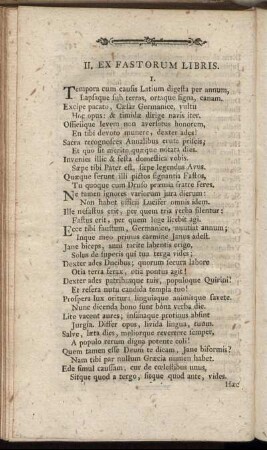 II. EX FASTORUM LIBRIS.
I.
Tempora cum causis Latium digesta per annum,
Lapsaque sub terras, ortaque signa, canam.
Excipe pacato, Cæsar Germanice, vultu
Hoc opus: & timidæ dirige navis iter.
Officiique levem non aversatus honorem,
En tibi devoto munere, dexter ades!
Sacra recognosces Annalibus eruta priscis;
Et quo sit merito quæque notata dies.
Invenies illic & festa domestica vobis.
Sæpe tibi Pater est, sæpe legendus Avus.
Quæque ferunt illi pictos signantia Fastos,
Tu quoque cum Druso præmia fratre feres.
Ne tamen ignores variorum jura dierum:
Non habet officii Lucifer omnis idem.
Ille nefastus erit, per quem tria verba silentur:
Fastus erit, per quem lege licebit agi.
Ecce tibi faustum, Germanice, nuntiat annum;
Inque meo primus carmine Janus adest.
Jane biceps, anni tacite labentis origo,
Solus de Superis qui tua terga vides;
Dexter ades Ducibus; quorum secura labore
Otia terra ferax, otia pontus agit!
Dexter ades patribusque tuis, populoque Quirini!
Et resera nutu candida templa tuo!
Prospera lux oritur: linguisque animisque favete.
Nunc dicenda bono sunt bona verba die.
Lite vacent aures; insanaque protinus absint
Jurgia. Differ opus, livida lingua, tuum.
Salve, læta dies, meliorque revertere semper,
A populo rerum digna potente coli!
Quem tamen esse Deum te dicam, Jane biformis?
Nam tibi par nullum Græcia numen habet.
Ede simul caussam, cur de cœlestibus unus,
Sitque quod a tergo, sitque quod ante, vides.
Hæc